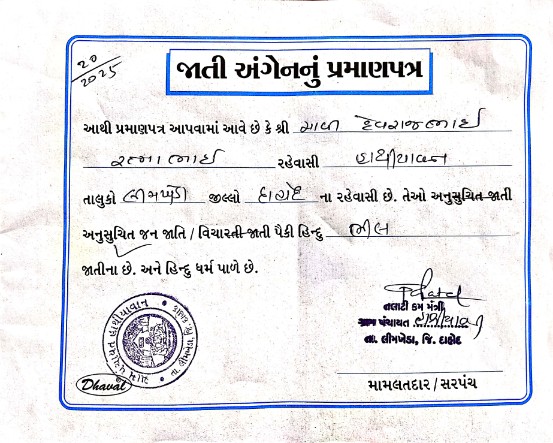 20
2025
જાતી અંગેનનું પ્રમાણપત્ર
આથી પ્રમાણપત્ર આપવામાં આવે છે કે શ્રી દેવરાજભાઈ
રત્નાભાઈ રહેવાસી હાથીયાવન
તાલુકો લીમખેડા જીલ્લો દાહોદ ના રહેવાસી છે. તેઓ અનુસુચિત જાતી
અનુસુચિત જન જાતિ / વિચારતી જાતી પૈકી હિન્દુ ભીલ
જાતીના છે. અને હિન્દુ ધર્મ પાળે છે.
તલાટી કમ મંત્રી
ગ્રામ પંચાયત હાથીયાવન
તા. લીમખેડા, જિ. દાહોદ
મામલતદાર / સરપંચ
Dhaval